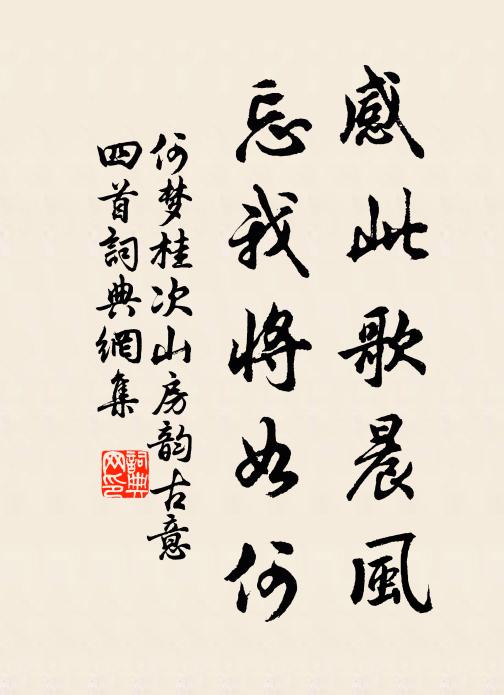 感此歌晨風
忘我將如何
何梦桂次山房韵古意
四首詞典網集
詞典
网印